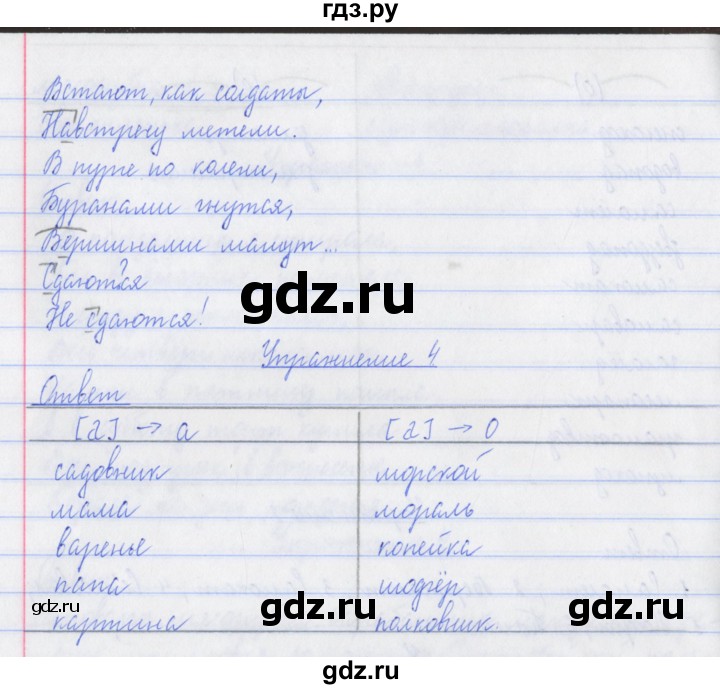 гдз.ру
Встают, как солдаты,
Навстречу метели.
В пурге по колени,
Буранами гнутся,
Вершинами машут...
Сдаются?
Не сдаются!
gdz.ru
Упражнение 4
Ответ
[а] → а [а] → о
садовник морской
мама мораль
варенье копейка
папа шофёр
картина полковник
gdz.ru gdz.ru gdz.ru
gdz.ru